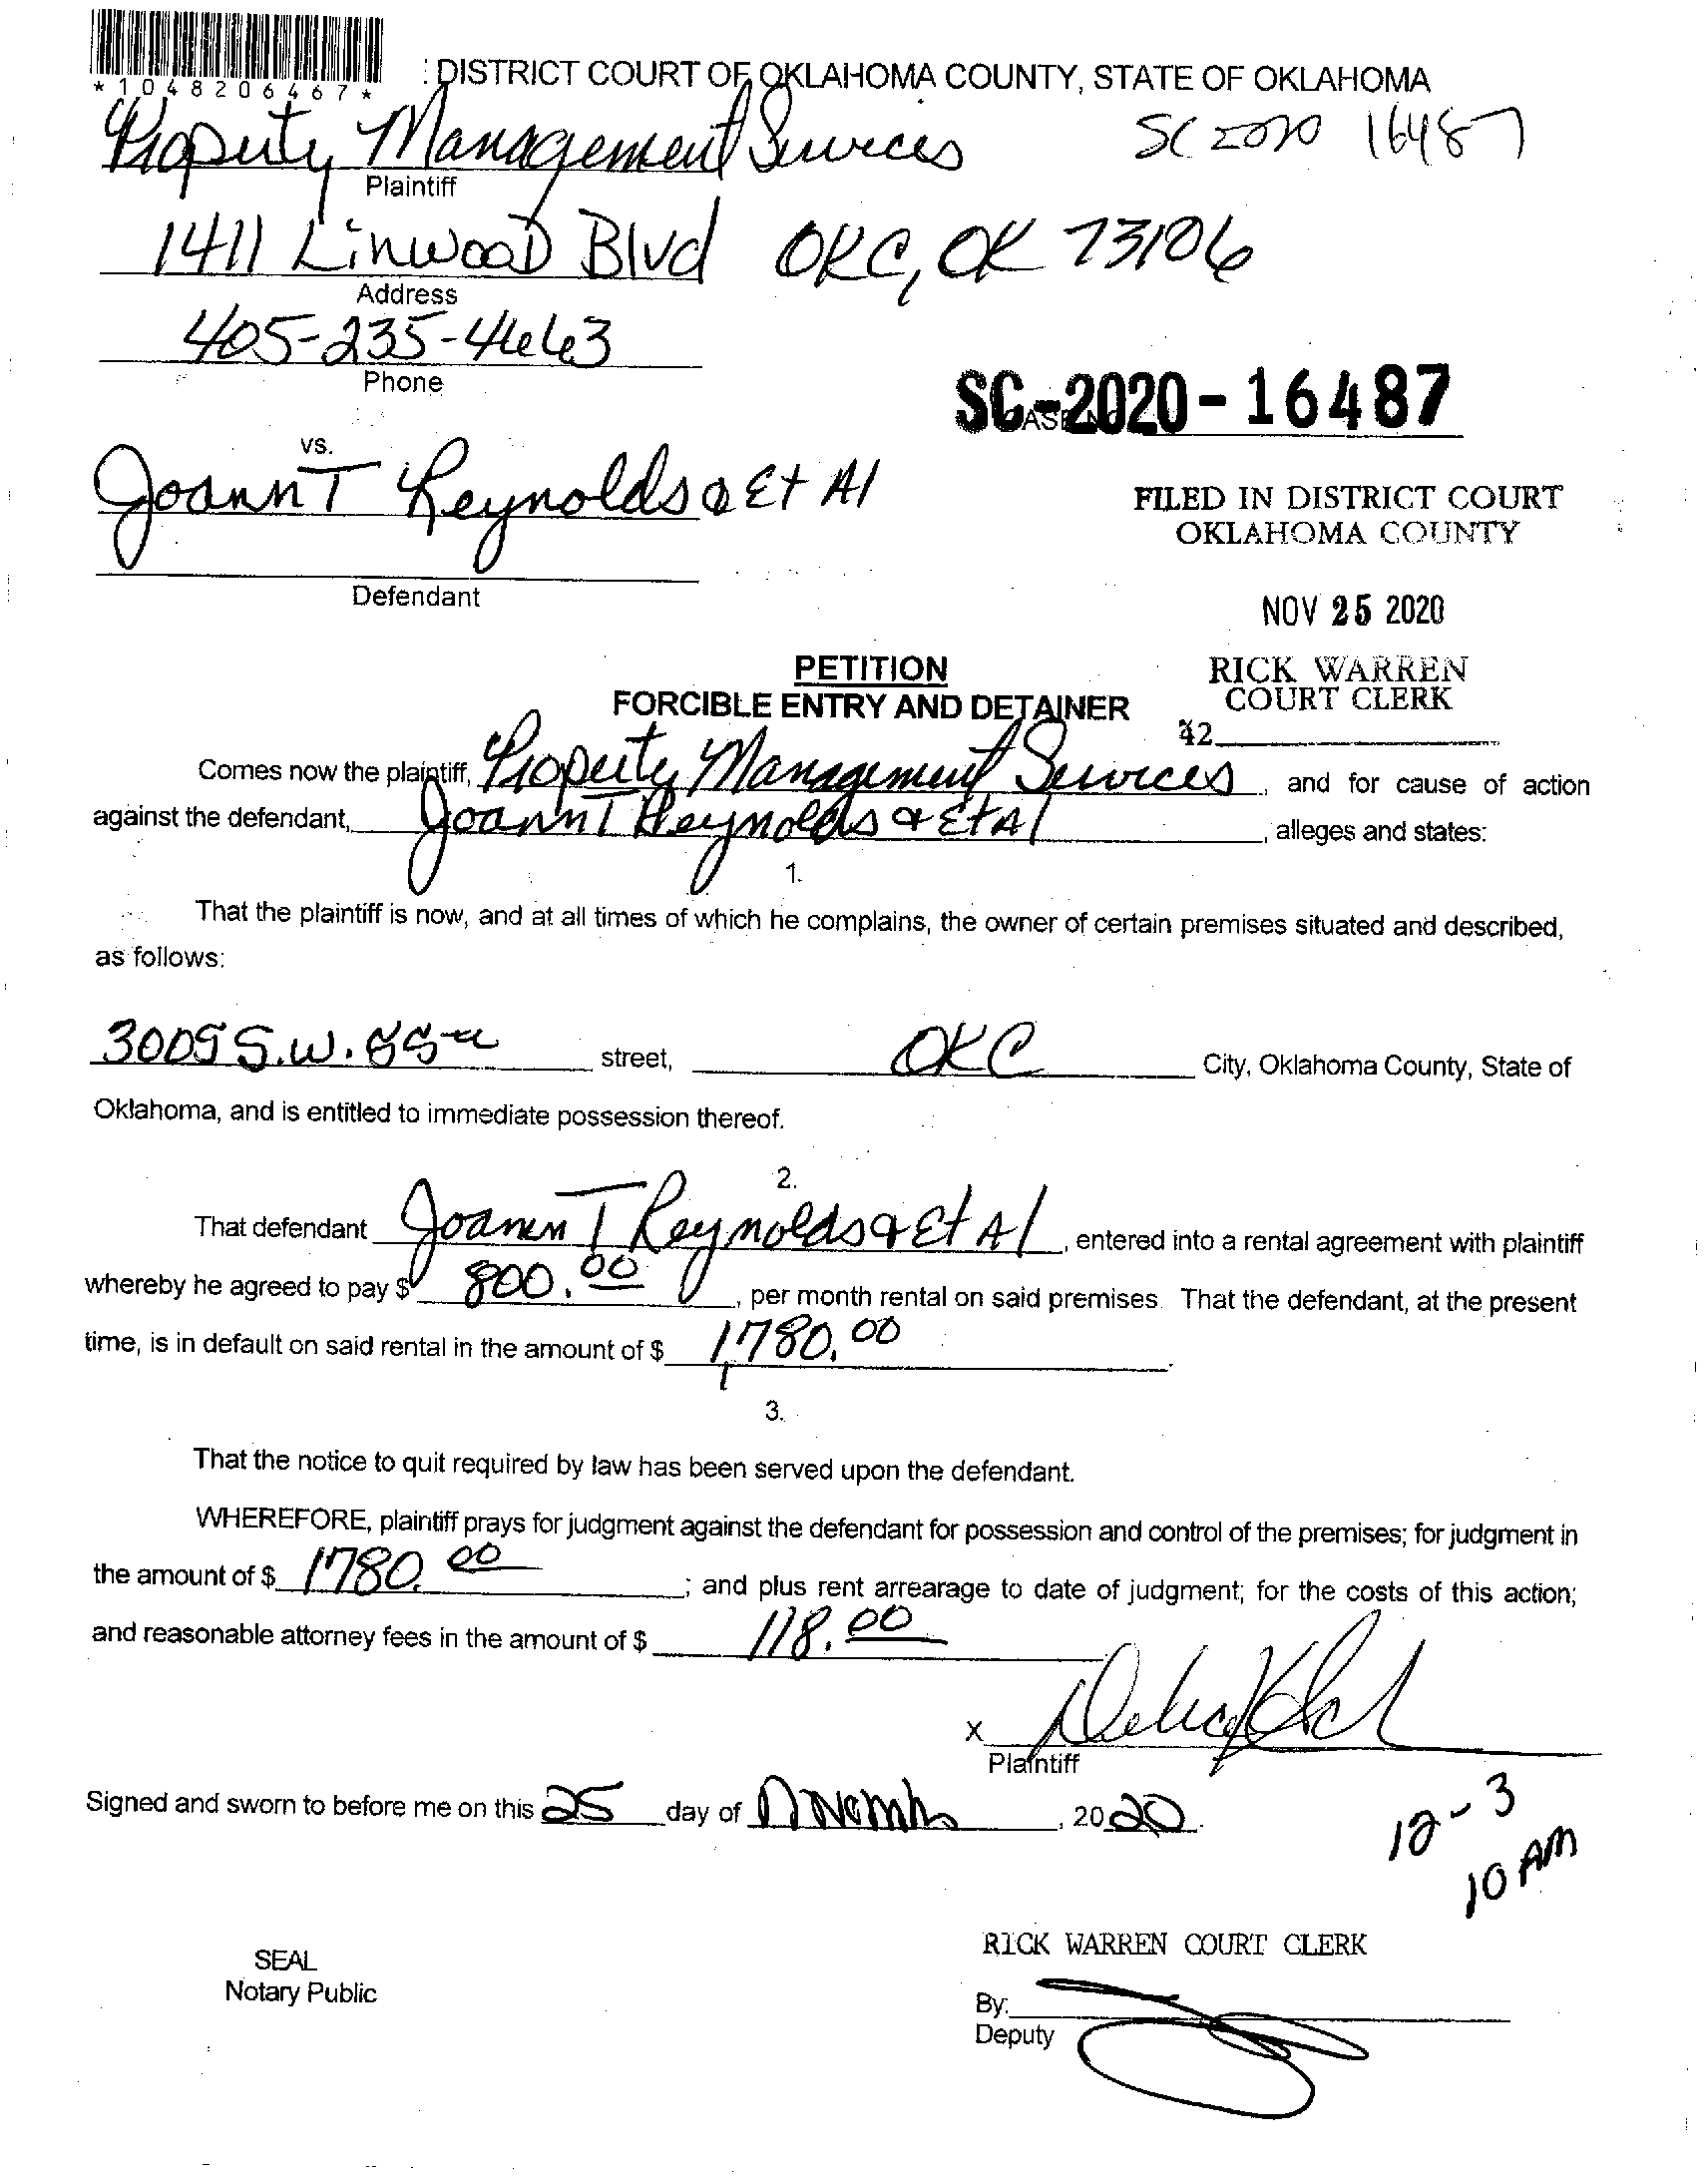 *1048206467*
: DISTRICT COURT OF OKLAHOMA COUNTY, STATE OF OKLAHOMA
Property Management Services
SC 2020 16487
Plaintiff
1411 Linwood Blvd OKC, OK 73106
Address
405-235-4663
Phone
SC-2020-16487
vs.
Joann T Reynolds & Et Al
FILED IN DISTRICT COURT
OKLAHOMA COUNTY
Defendant
NOV 25 2020
PETITION
RICK WARREN
FORCIBLE ENTRY AND DETAINER
COURT CLERK
42
Comes now the plaintiff, Property Management Services, and for cause of action
against the defendant, Joann T Reynolds & Et Al, alleges and states:
1.
That the plaintiff is now, and at all times of which he complains, the owner of certain premises situated and described,
as follows:
3009 S.W. 55th street, OKC City, Oklahoma County, State of
Oklahoma, and is entitled to immediate possession thereof.
2.
That defendant Joann T Reynolds & Et Al, entered into a rental agreement with plaintiff
whereby he agreed to pay $ 800.00, per month rental on said premises. That the defendant, at the present
time, is in default on said rental in the amount of $ 1,780.00.
3.
That the notice to quit required by law has been served upon the defendant.
WHEREFORE, plaintiff prays for judgment against the defendant for possession and control of the premises; for judgment in
the amount of $ 1780.00; and plus rent arrearage to date of judgment; for the costs of this action;
and reasonable attorney fees in the amount of $ 118.00
X
Plaintiff
Signed and sworn to before me on this 25 day of , 2020.
12-3
10 AM
RICK WARREN COURT CLERK
SEAL
Notary Public
By:
Deputy